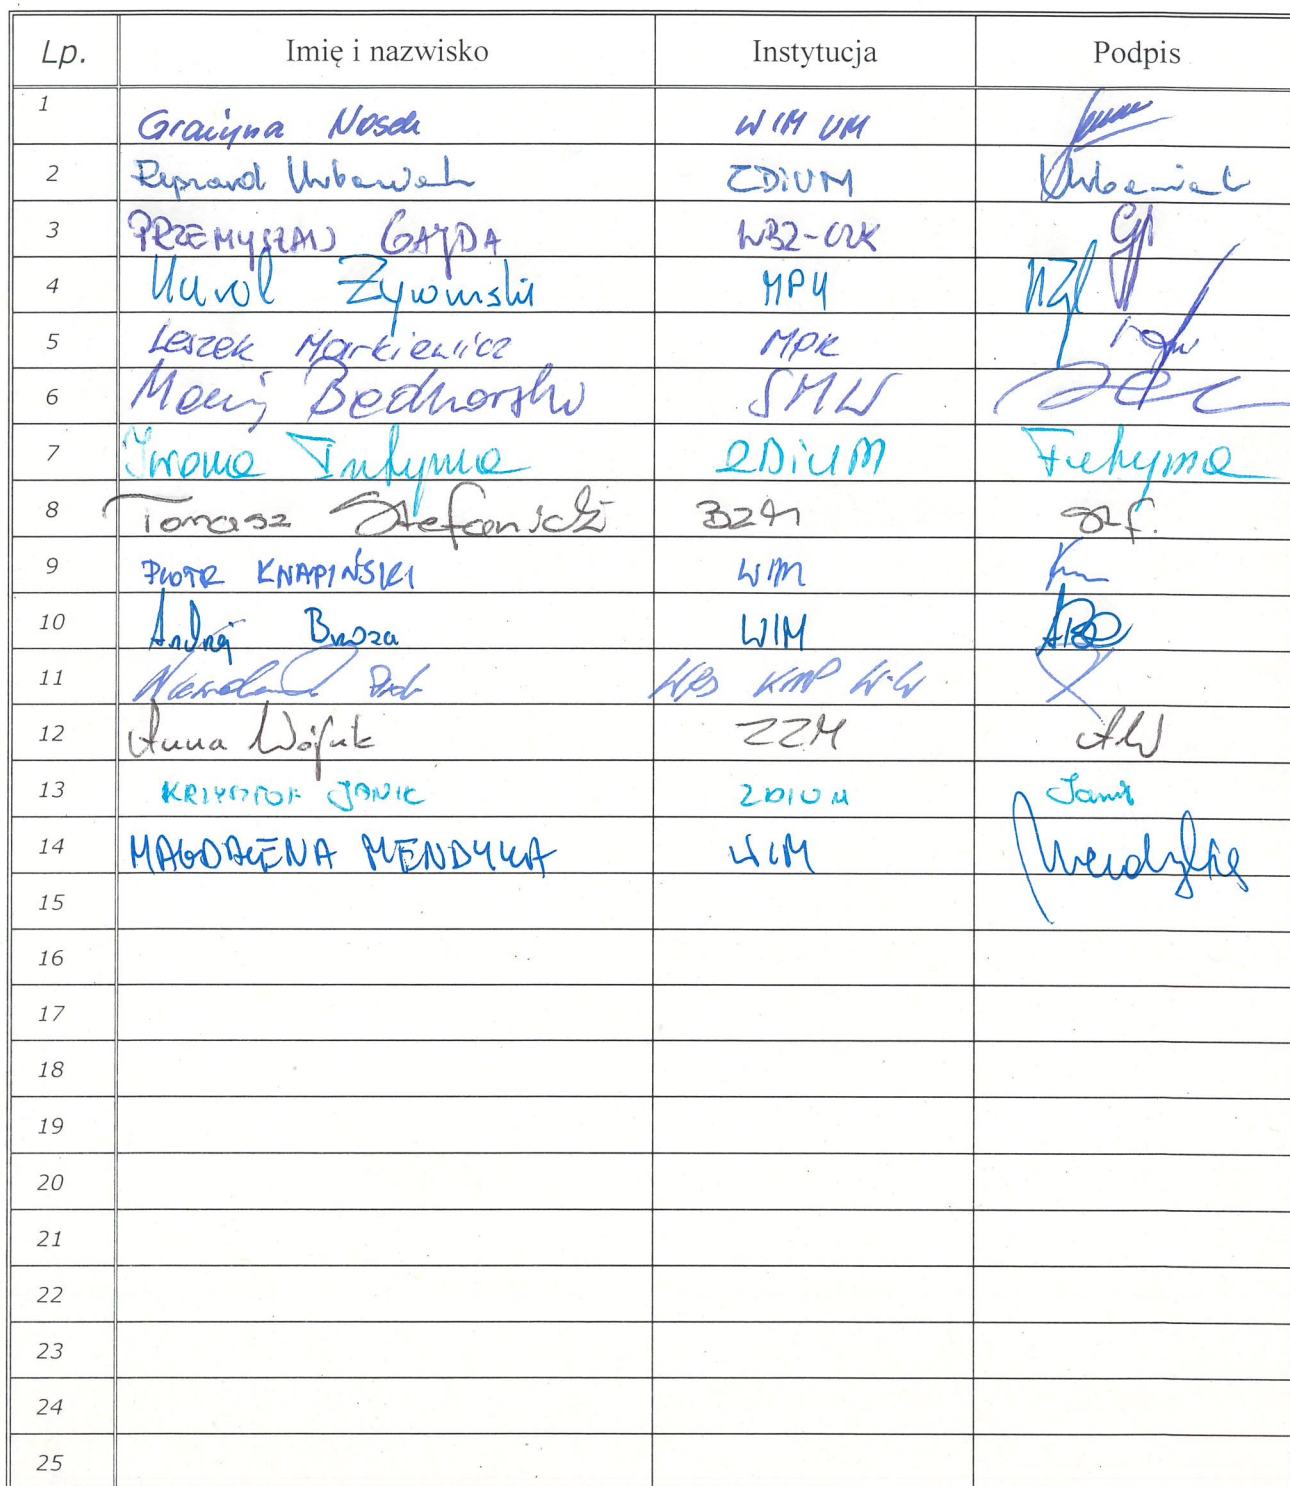 Lp. Imię i nazwisko Instytucja Podpis
1 Grażyna Nosek WIM UM
2 Ryszard Urbaniak ZDiUM Urbaniak
3 PRZEMYSŁAW GAJDA WBZ-CZK
4 Karol Żyromski MPU
5 Leszek Markiewicz MPK
6 Maciej Bednarski SMW
7 Iwona Futyma ZDiUM Futyma
8 Tomasz Stefanicki BZM Stf.
9 PIOTR KNAPIŃSKI WIM
10 Andrzej Brzoza WIM
11 KMP
12 Anna Wójcik ZZM AW
13 KRZYSZTOF JANIK ZDIUM Janik
14 MAGDALENA MENDYKA WIM Mendyka
15
16
17
18
19
20
21
22
23
24
25